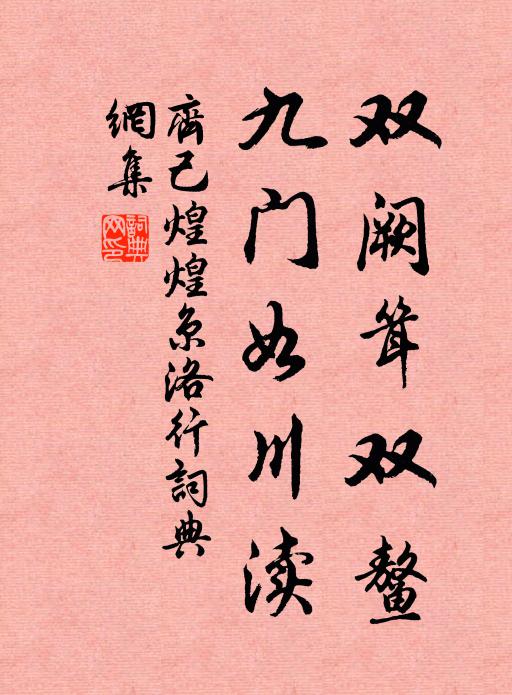 双阙耸双鳌
九门如川渎
齊己煌煌京洛行詞典
網集
詞典网印